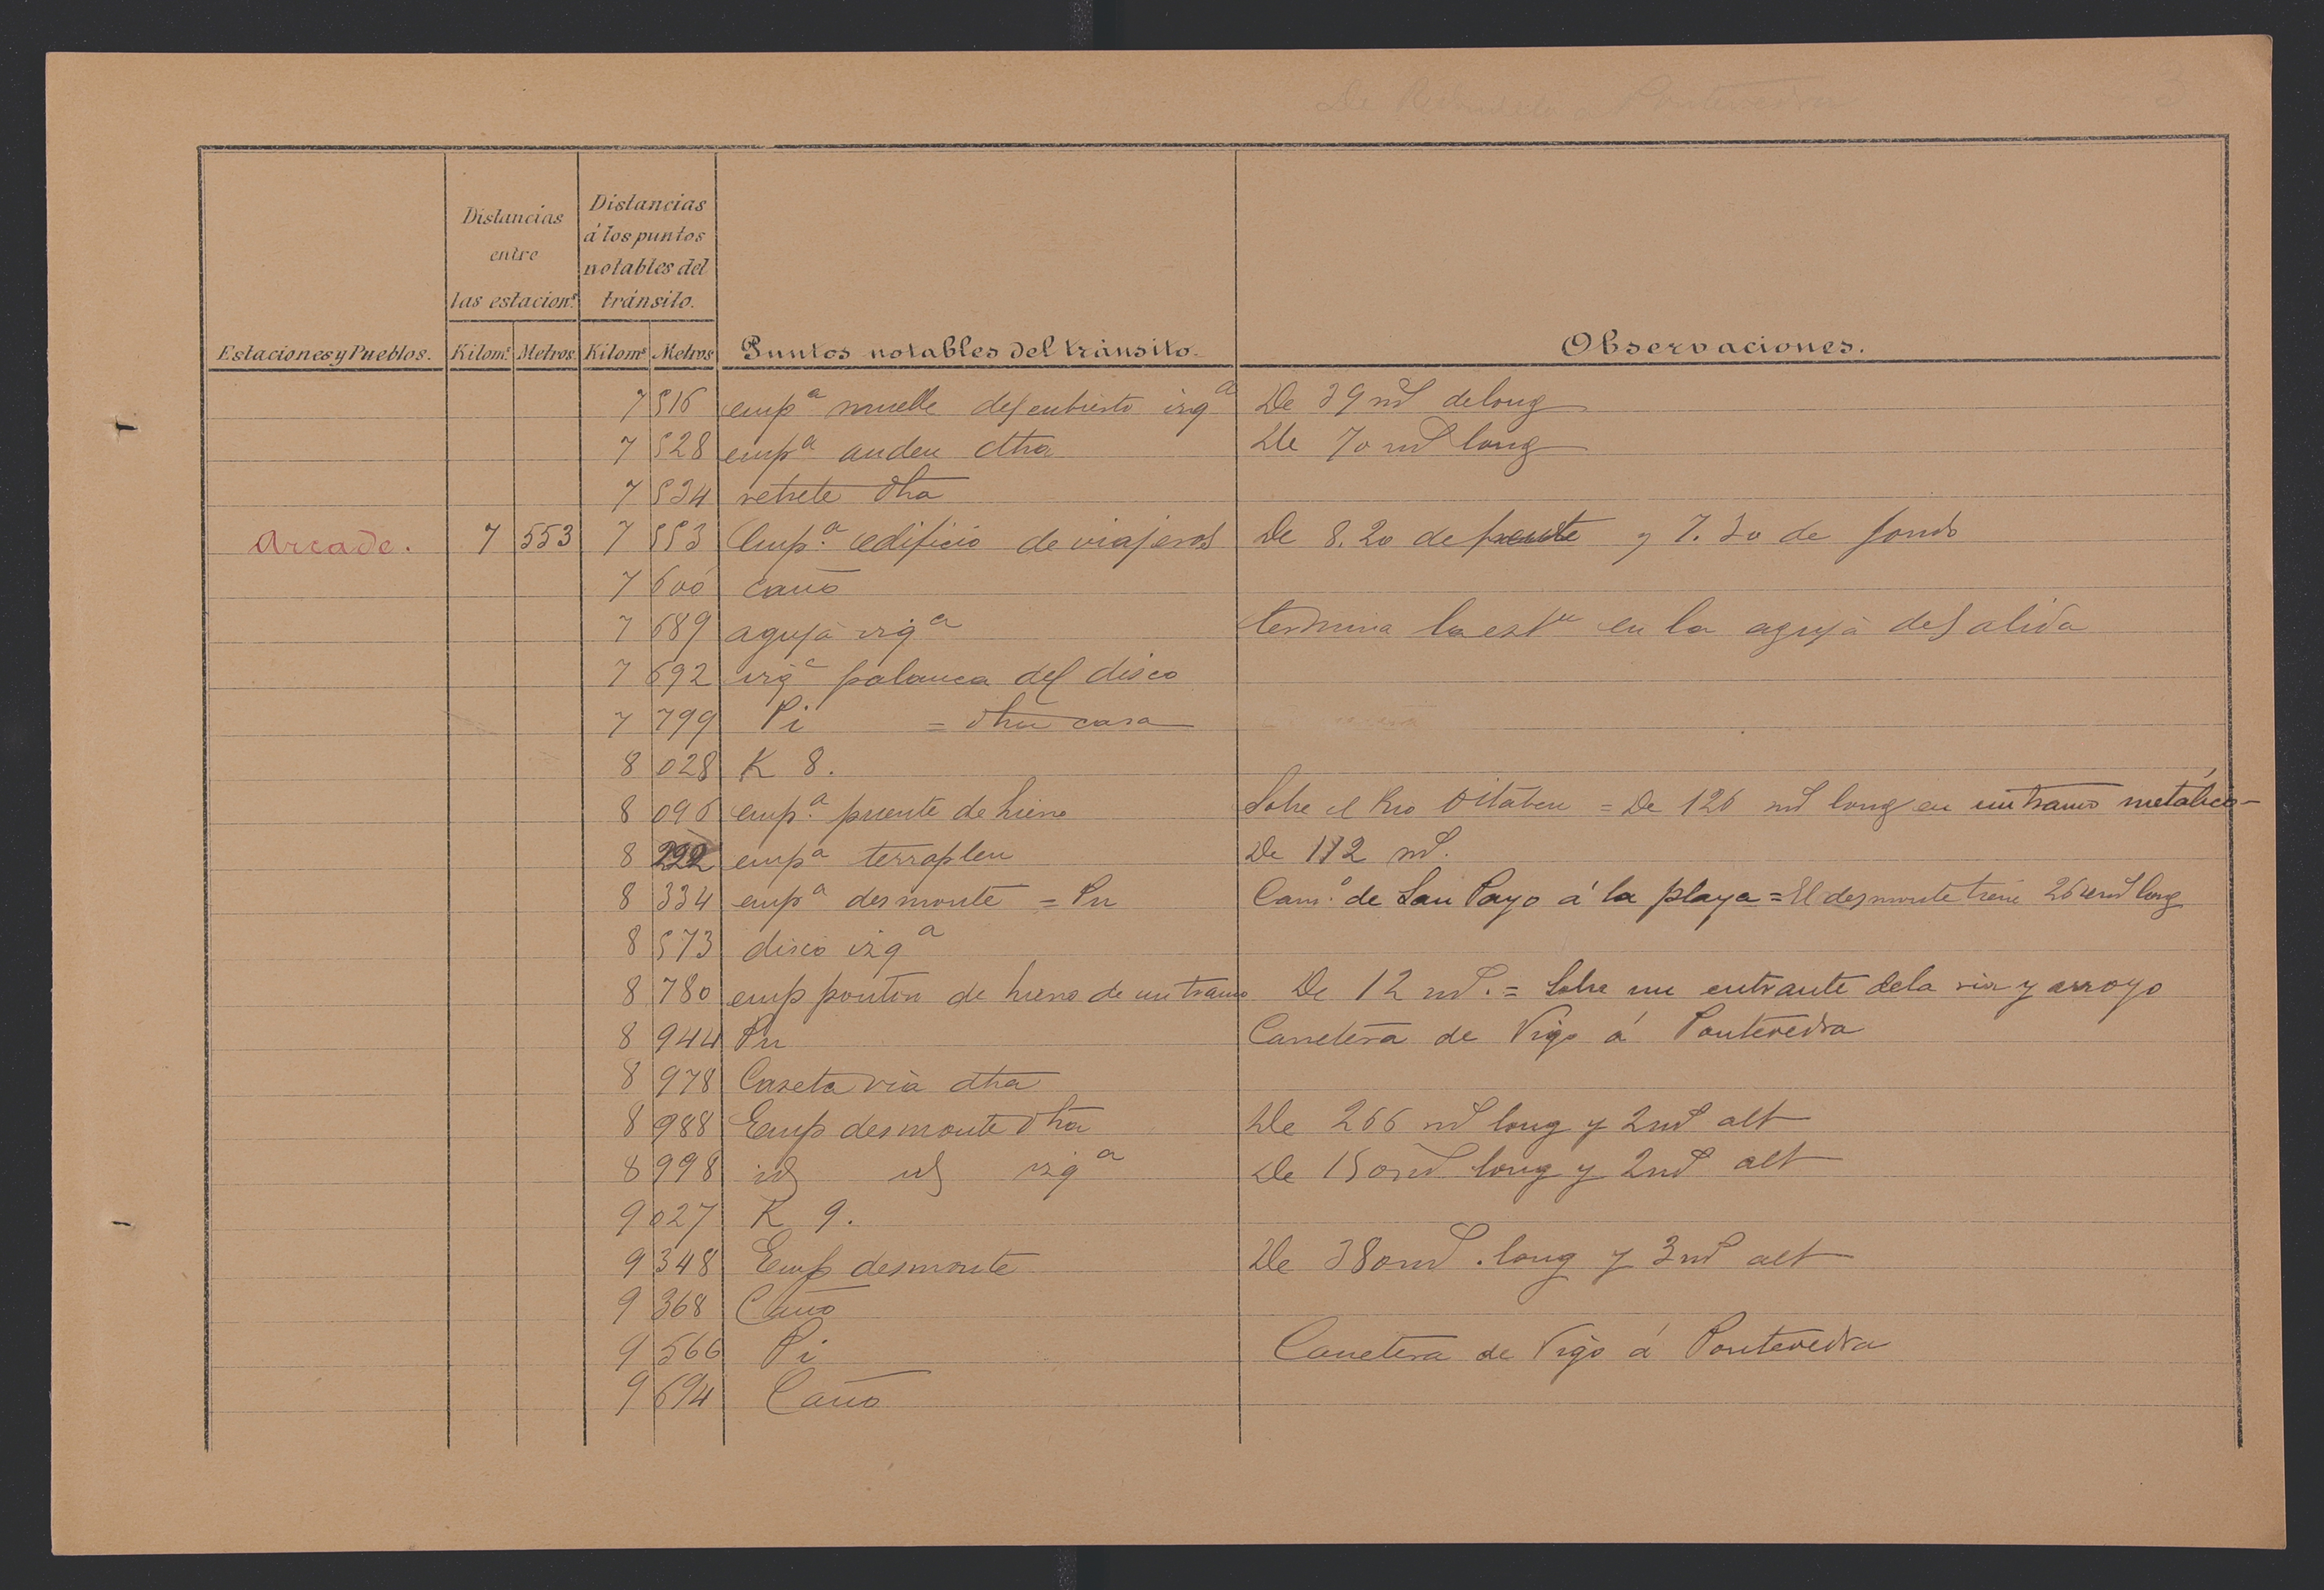 De Redondela a Pontevedra
Estaciones y Pueblos. Distancias entre las estacion.s Kilom.s Metros. Distancias á los puntos notables del tránsito. Kilom.s Metros Puntos notables del tránsito. Observaciones.
7 516 empª muelle descubierto izqª De 39 ms de long
7 528 empª anden dtra De 70 ms long
7 534 retrete dra
Arcade. 7 553 7 553 Emp.ª edificio de viajeros De 8,20 de frente y 7.30 de fondo
7 600 caño
7 689 aguja izqª termina la estn en la aguja de salida
7 692 izqª palanca del disco
7 799 Pi = dha casa
8 028 K 8.
8 096 emp.ª puente de hierro Sobre el Rio Oitaben = De 126 ms long en un tramo metálico
8 222 empª terraplen De 112 ms.
8 334 empª desmonte = Pn Cam.º de San Payo á la playa = El desmonte tiene 262 ms long
8 573 disco izqª
8 780 emp ponton de hierro de un tramo De 12 ms. = Sobre un entrante de la ria y arroyo
8 944 Pn Carretera de Vigo á Pontevedra
8 978 Caseta via dtra
8 988 Emp desmonte dra De 266 ms long y 2 ms alt
8 998 id id izqª De 150 ms long y 2 ms alt
9 027 K 9.
9 348 Emp desmonte De 380 ms. long y 3 ms alt
9 368 Caño
9 566 Pi Carretera de Vigo á Pontevedra
9 694 Caño